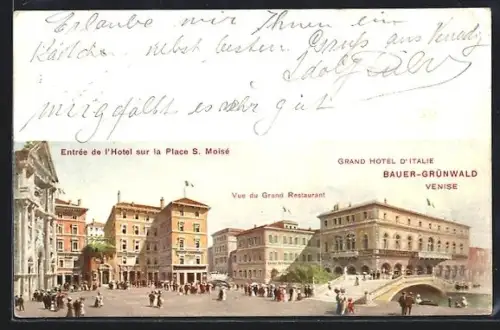 Erlaube mir Ihnen ein
Kärtchen nebst besten Gruss aus Venedig
Idolf
mir gefällt es sehr gut
Entrée de l'Hotel sur la Place S. Moisé
GRAND HOTEL D'ITALIE
BAUER-GRÜNWALD
VENISE
Vue du Grand Restaurant